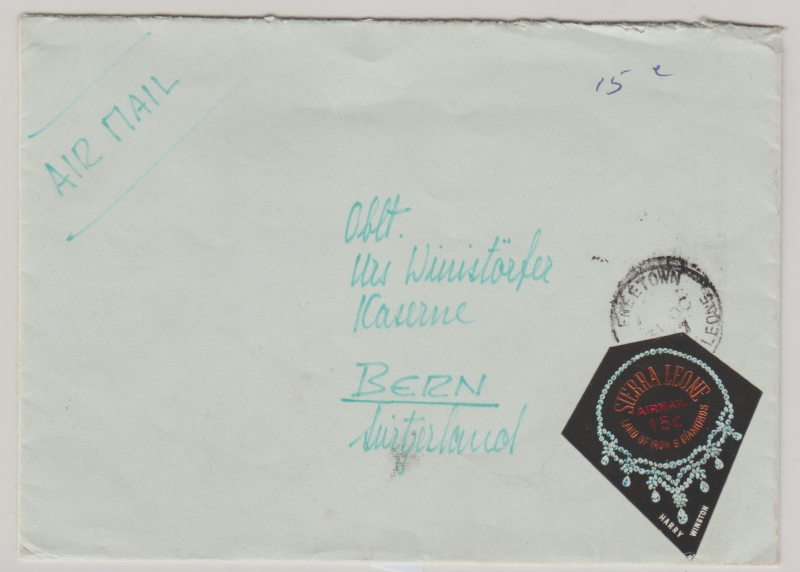 AIR MAIL
15 c
Oblt.
Urs Winistörfer
Kaserne
BERN
Switzerland
FREETOWN
LEONE
SIERRA LEONE
AIRMAIL
15c
LAND OF IRON & DIAMONDS
HARRY WINSTON